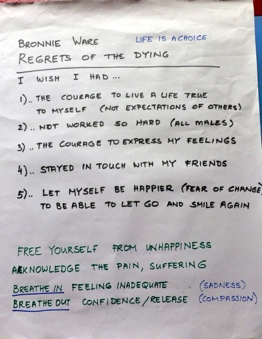 BRONNIE WARE LIFE IS A CHOICE
REGRETS OF THE DYING
I WISH I HAD ...
1).. THE COURAGE TO LIVE A LIFE TRUE
TO MYSELF (NOT EXPECTATIONS OF OTHERS)
2).. NOT WORKED SO HARD (ALL MALES)
3).. THE COURAGE TO EXPRESS MY FEELINGS
4).. STAYED IN TOUCH WITH MY FRIENDS
5).. LET MYSELF BE HAPPIER (FEAR OF CHANGE)
TO BE ABLE TO LET GO AND SMILE AGAIN
FREE YOURSELF FROM UNHAPPINESS
ACKNOWLEDGE THE PAIN, SUFFERING
BREATHE IN FEELING INADEQUATE (SADNESS)
BREATHE OUT CONFIDENCE/RELEASE (COMPASSION)